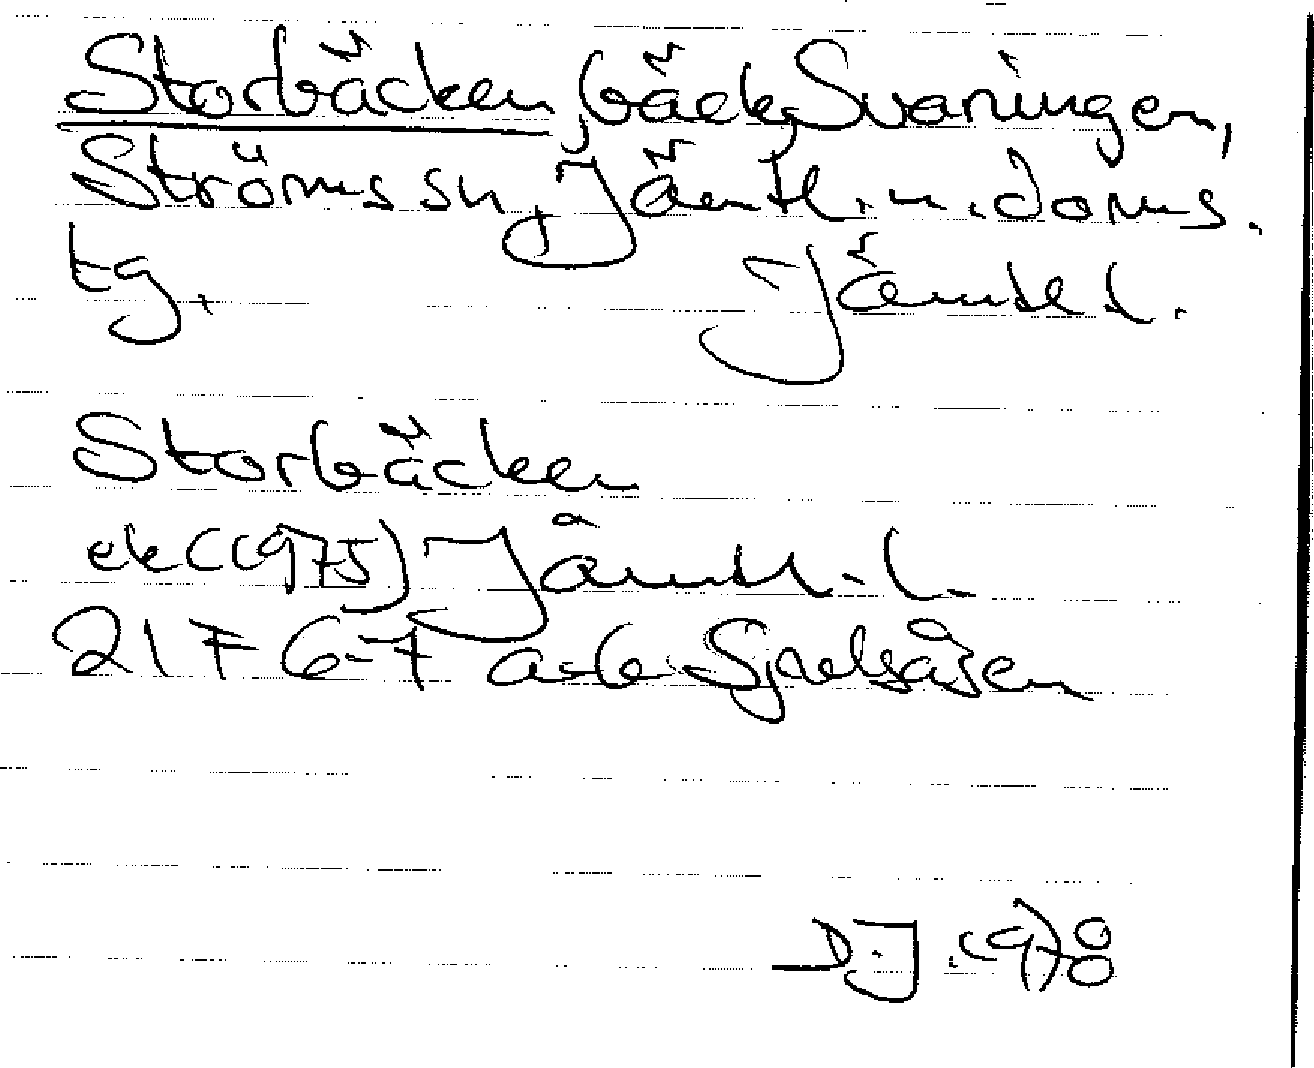 Storbäcken, bäck, Svaningen,
Ströms sn, Jämtl. n. doms.
tg. Jämtl l.
Storbäcken
ek (1975) Jämtl. l.
217 6-7 a-b Sjulsåsen
D.J. 1978